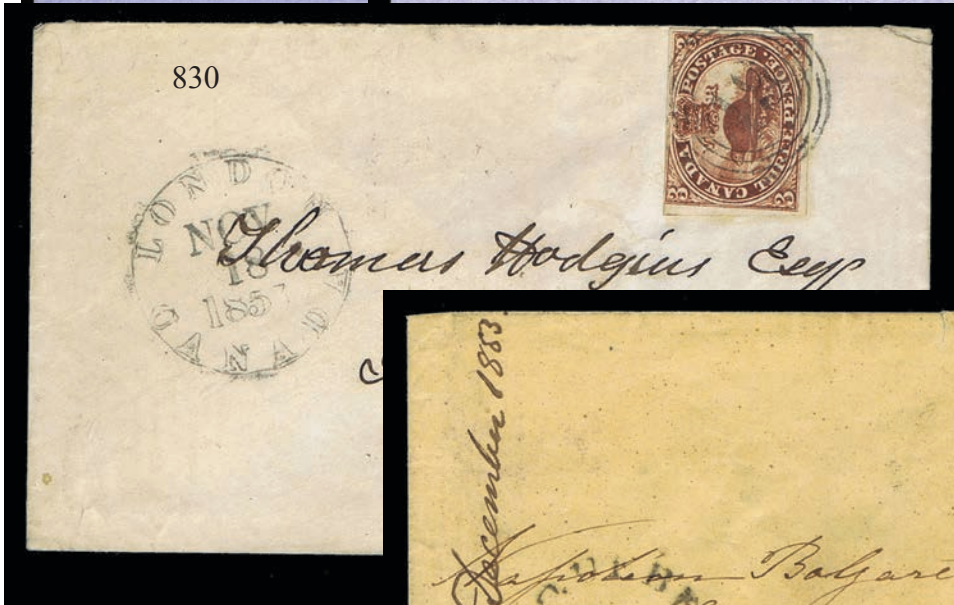 830
3 3
CANADA POSTAGE THREE PENCE
3 3
LONDON
NOV
18
185
CANADA
Thomas Hodgins Esqr
December 1853.
Napoleon